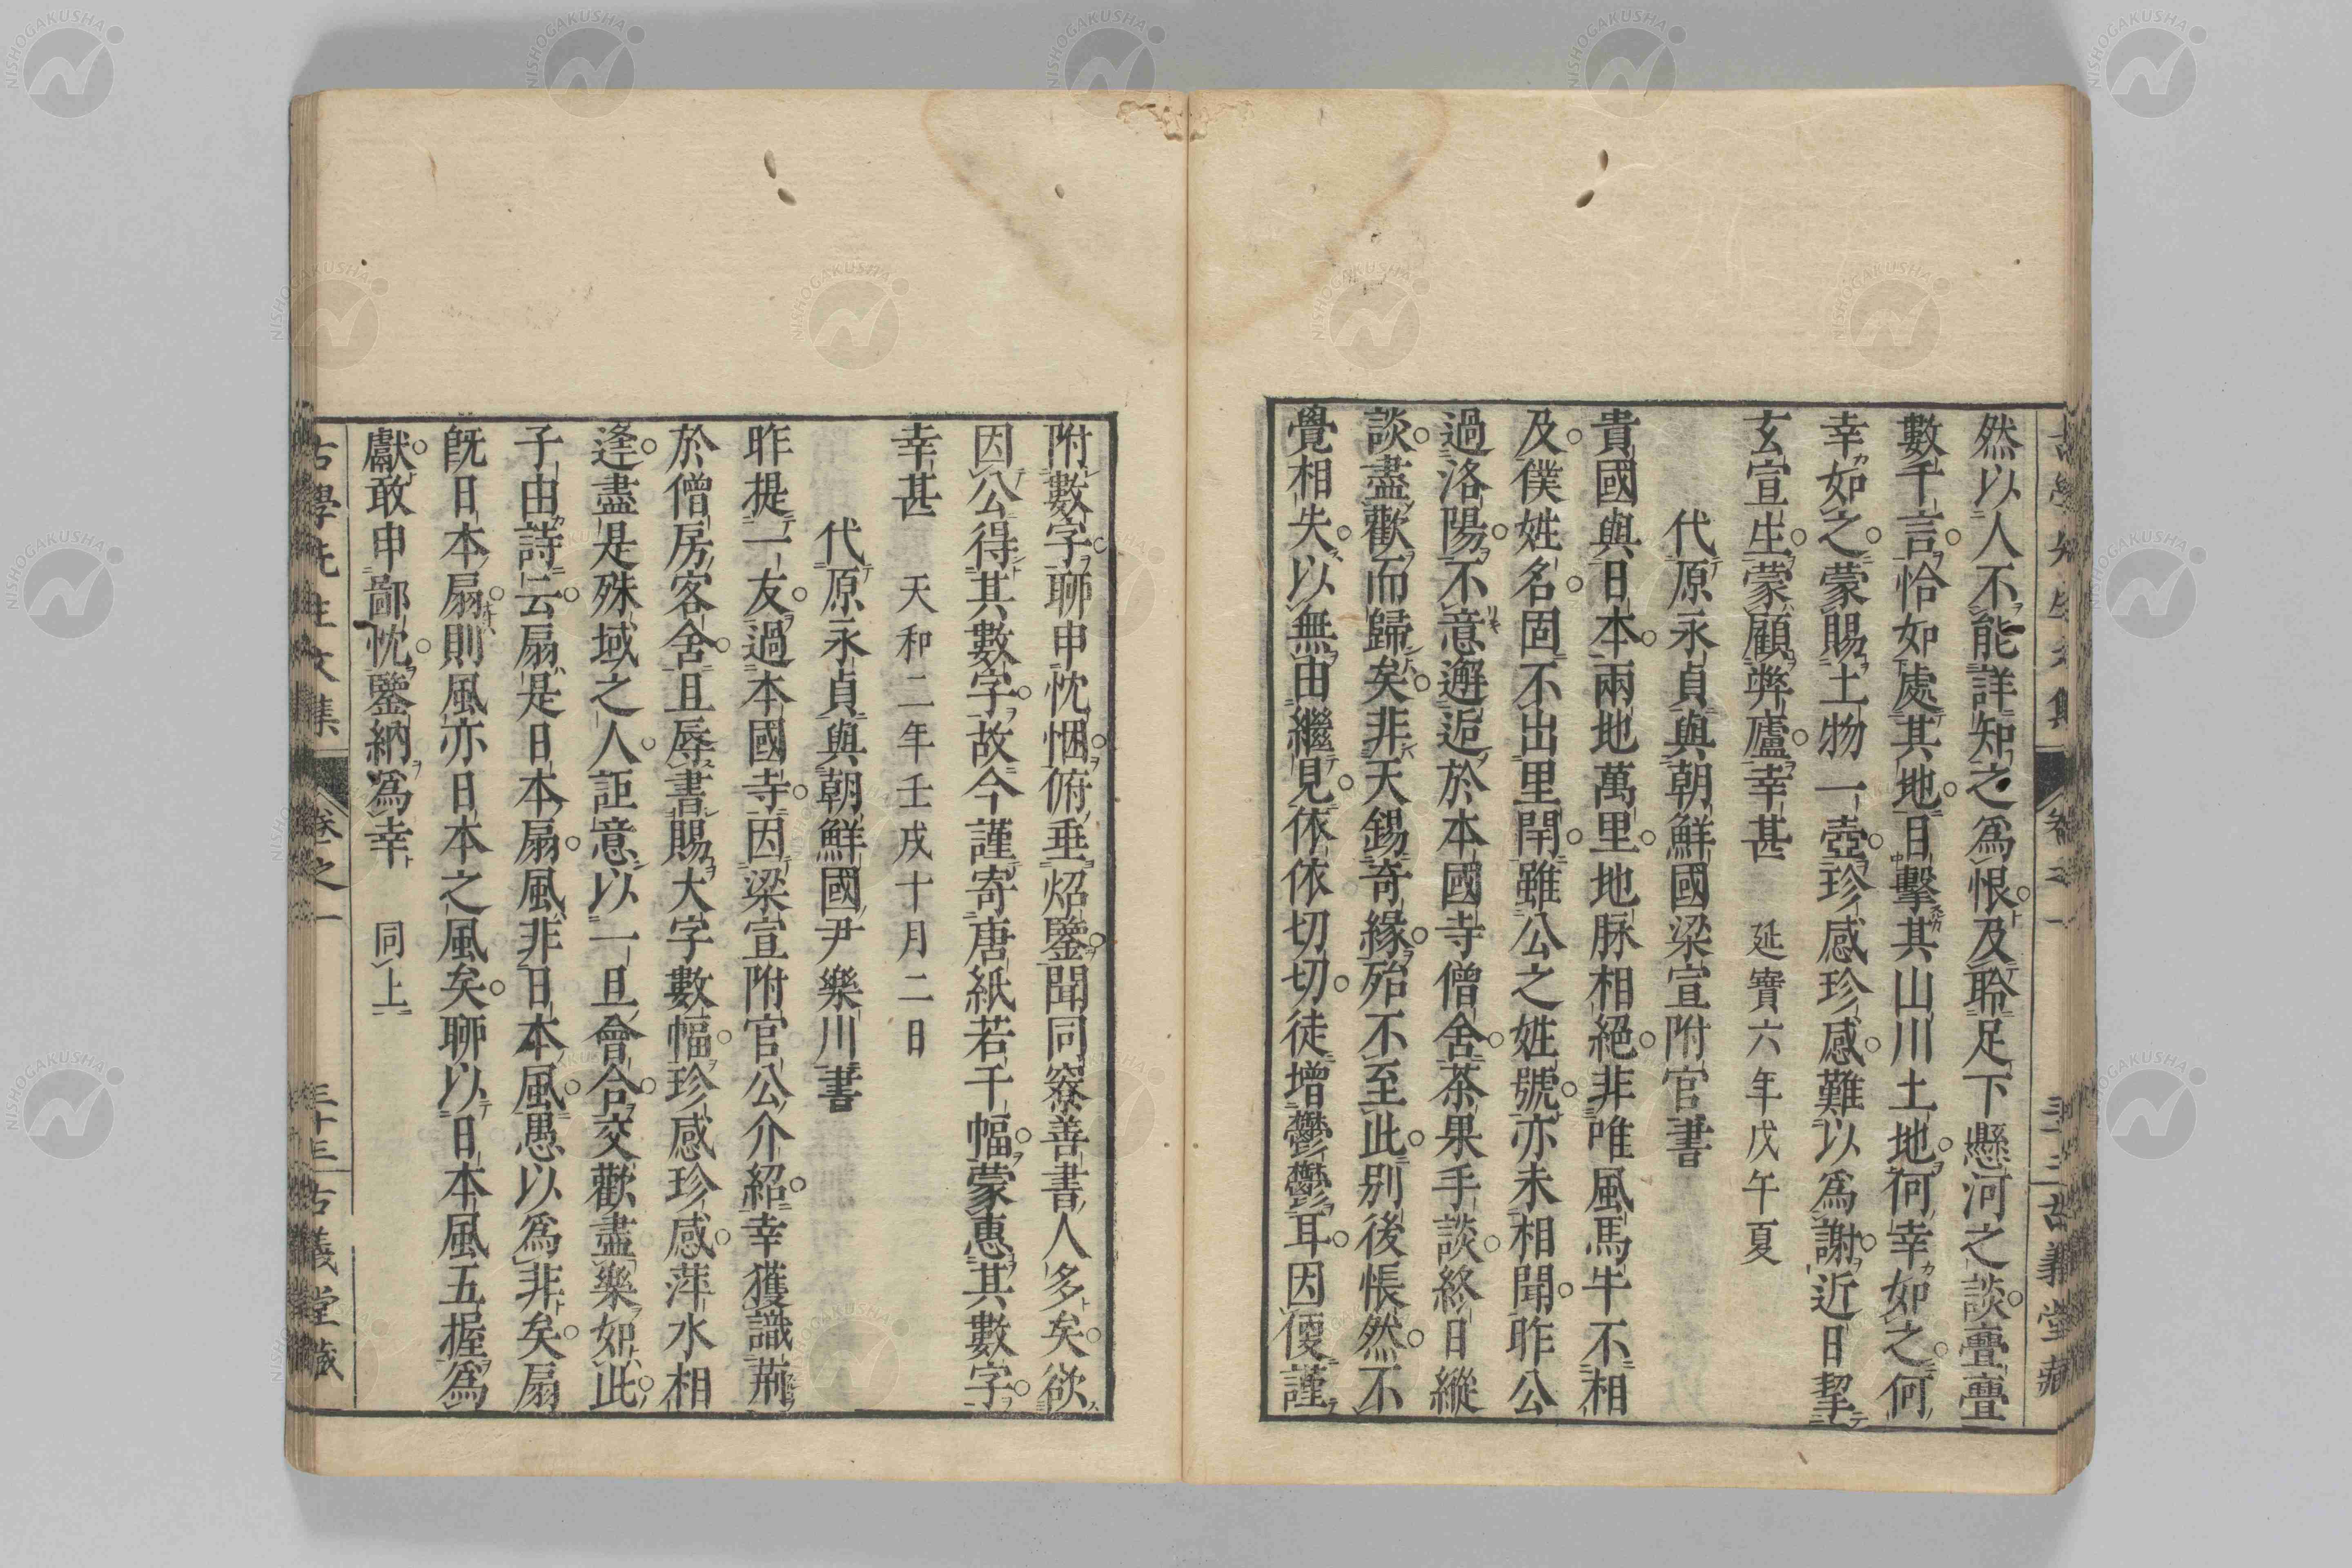 然以人不能詳知之爲恨及聆足下懸河之談亹亹
數千言恰如處其地目擊其山川土地何幸如之何
幸如之蒙賜土物一壺珍感珍感難以爲謝近日挈
玄宣生蒙顧弊廬幸甚　延寶六年戊午夏
代原永貞與朝鮮國梁宣附官書
貴國與日本兩地萬里地脉相絕非唯風馬牛不相
及僕姓名固不出里閈雖公之姓號亦未相聞昨公
過洛陽不意邂逅於本國寺僧舍茶果手談終日縱
談盡歡而歸矣非天錫奇緣殆不至此別後悵然不
覺相失以無由繼見依依切切徒增鬱鬱耳因便謹
附數字聊申忱悃俯垂炤鑒聞同寮善書人多矣欲
因公得其數字故今謹寄唐紙若干幅蒙惠其數字
幸甚　天和二年壬戌十月二日
代原永貞與朝鮮國尹樂川書
昨提一友過本國寺因梁宣附官公介紹幸獲識荊
於僧房客舍且辱書賜大字數幅珍感珍感萍水相
逢盡是殊域之人詎意以一旦會合交歡盡樂如此
子由詩云扇是日本扇風非日本風愚以爲非矣扇
旣日本扇則風亦日本之風矣聊以日本風五握爲
獻敢申鄙忱鑒納爲幸　同上
古學先生文集　卷之一　三十三　古義堂藏
NISHOGAKUSHA